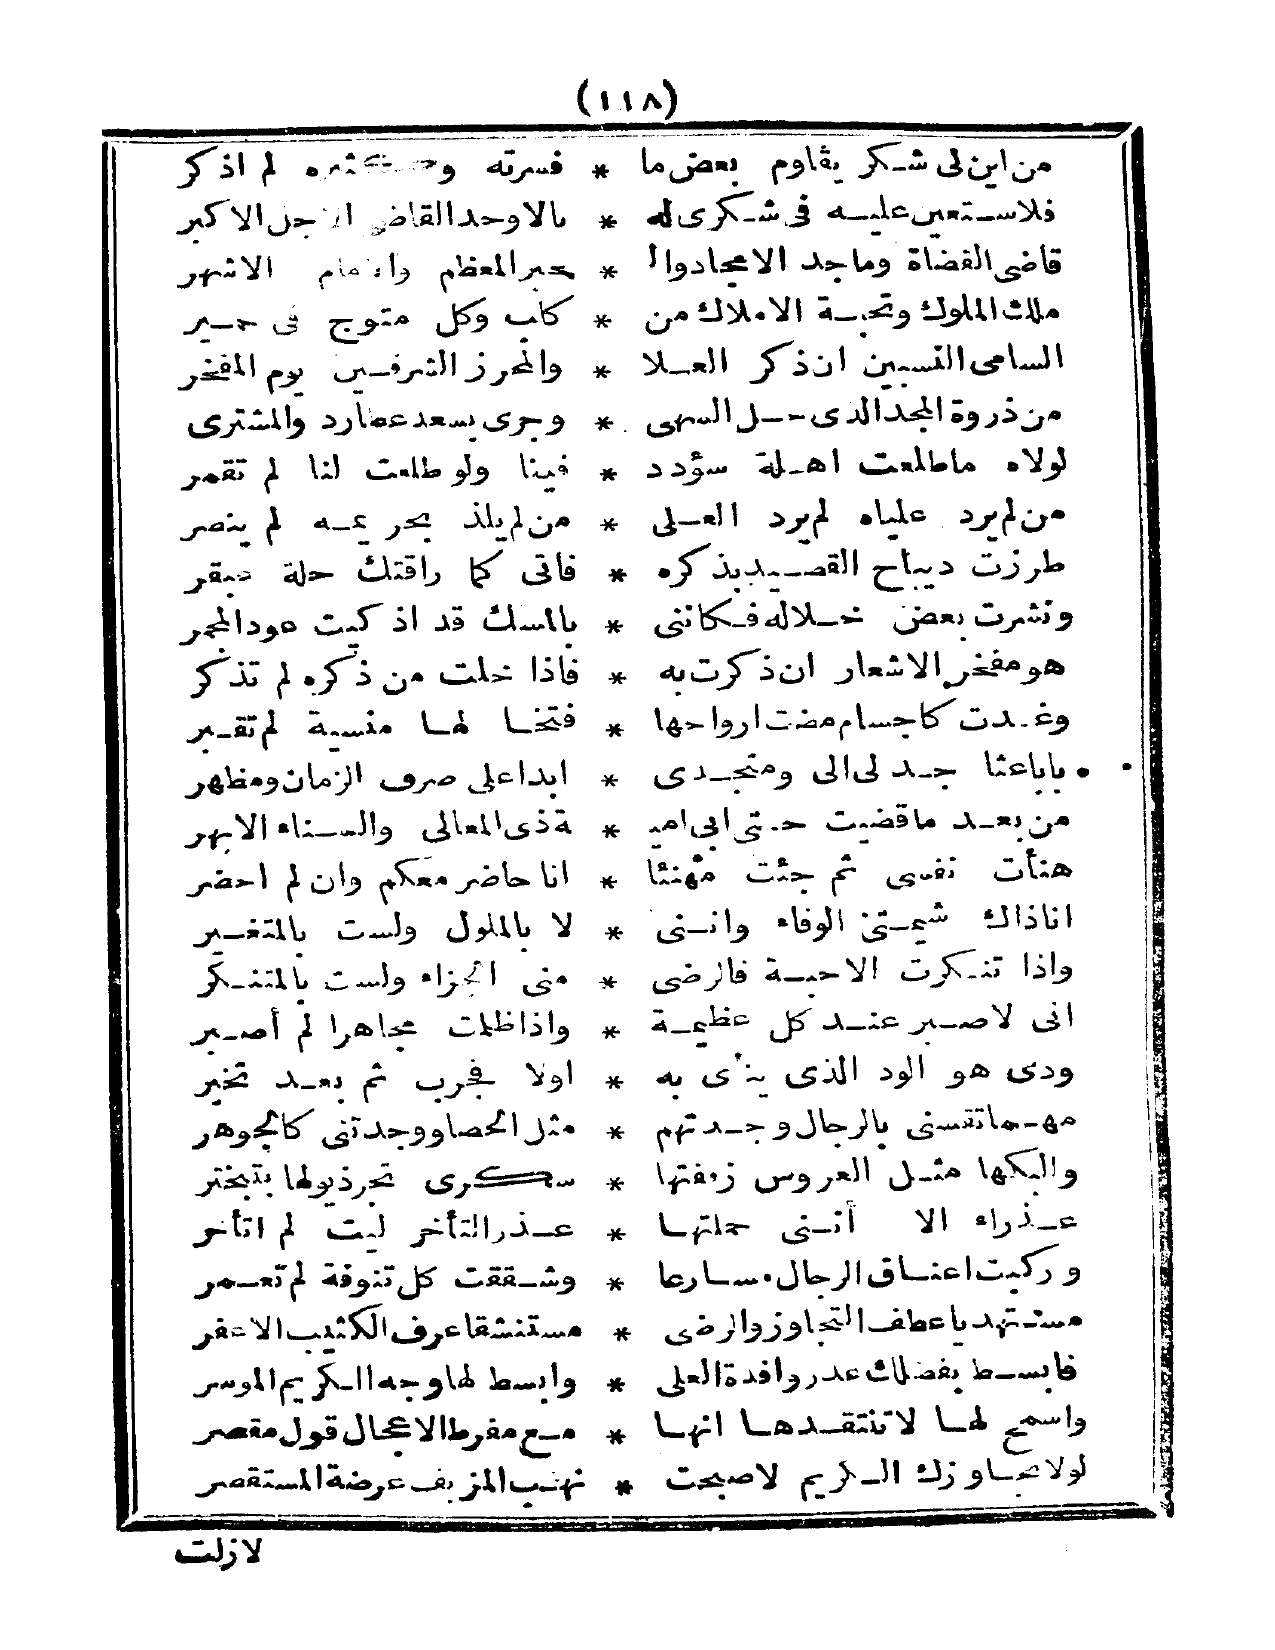 (١١٨)
من اين لى شكر يقاوم بعض ما * فسرته لم اذكر
فلاستعين عليه فى شكرى له * بالاوحد القاضى الاجل الاكبر
قاضى القضاة وماجد الامجاد وال * حبر المعظم والامام الاشهر
ملك الملوك ونخبة الاملاك من * كاب وكل متوج فى حمير
السامى النسبين ان ذكر العلا * والمحرز الشرفين يوم المفخر
من ذروة المجد الذى حل السهى * وجرى بسعد عطارد والمشترى
لولاه ما طلعت اهلة سؤدد * فينا ولو طلعت لنا لم تقمر
من لم يرد علياه لم يرد العلى * من لم يلذ بحريمه لم ينصر
طرزت ديباج القصيد بذكره * فاتى كما راقتك حلة عبقر
ونشرت بعض خلاله فكاننى * بالمسك قد اذكيت عود المجمر
هو مفخر الاشعار ان ذكرت به * فاذا خلت من ذكره لم تذكر
وغدت كاجسام مضت ارواحها * فتخا لها منسية لم تقبر
يا باعثا جدلى الى ومنجدى * ابدا على صرف الزمان ومظهر
من بعد ما قضيت حتى ابى امي * ة ذى المعالى والسناء الابهر
هنأت نفسى ثم جئت مهنئا * انا حاضر معكم وان لم احضر
انا ذاك شيمتى الوفاء واننى * لا بالملول ولست بالمتغير
واذا تنكرت الاحبة فالرضى * منى الجزاء ولست بالمتنكر
انى لاصبر عند كل عظيمة * واذا ظلمت مجاهرا لم أصبر
ودى هو الود الذى ينأى به * اولا فجرب ثم بعد تخبر
مهما تقسنى بالرجال وجدتهم * مثل الحصا ووجدتنى كالجوهر
واليكها مثل العروس زففتها * سكرى تجر ذيولها بتبختر
عذراء الا أننى حملتها * عذر التأخر ليت لم اتأخر
وركبت اعناق الرجال مسارعا * وشققت كل تنوفة لم تعمر
مستهديا عطف التجاوز والرضى * مستنشقا عرف الكثيب الاعفر
فابسط بفضلك عذر وافدة العلى * وابسط لها وجه الكريم الموسر
واسمح لها لا تنتقدها انها * مع مفرط الاعجال قول مقصر
لولا تجاوزك الكريم لاصبحت * نهب المزيف عرضة المستقصر
لازلت